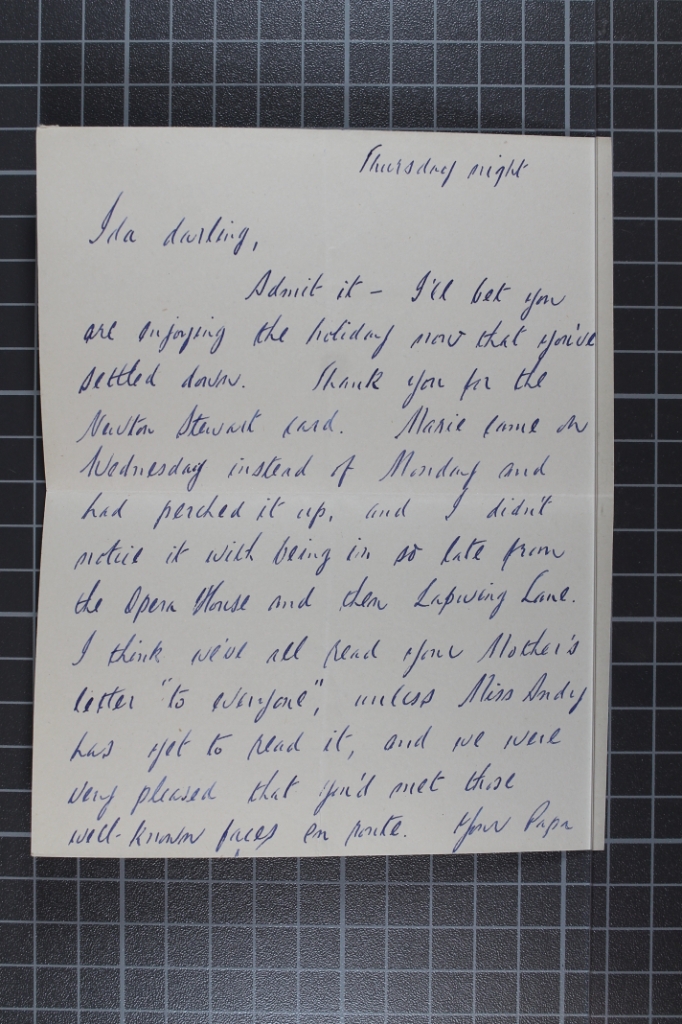 Thursday night
Ida darling,
Admit it – I'll bet you
are enjoying the holiday now that you've
settled down. Thank you for the
Newton Stewart card. Marie came on
Wednesday instead of Monday and
had perched it up, and I didn't
notice it with being in so late from
the Opera House and then Lapwing Lane.
I think we've all read your Mother's
letter "to everyone", unless Miss Andy
has yet to read it, and we were
very pleased that you'd met those
well-known faces en route. Your Papa